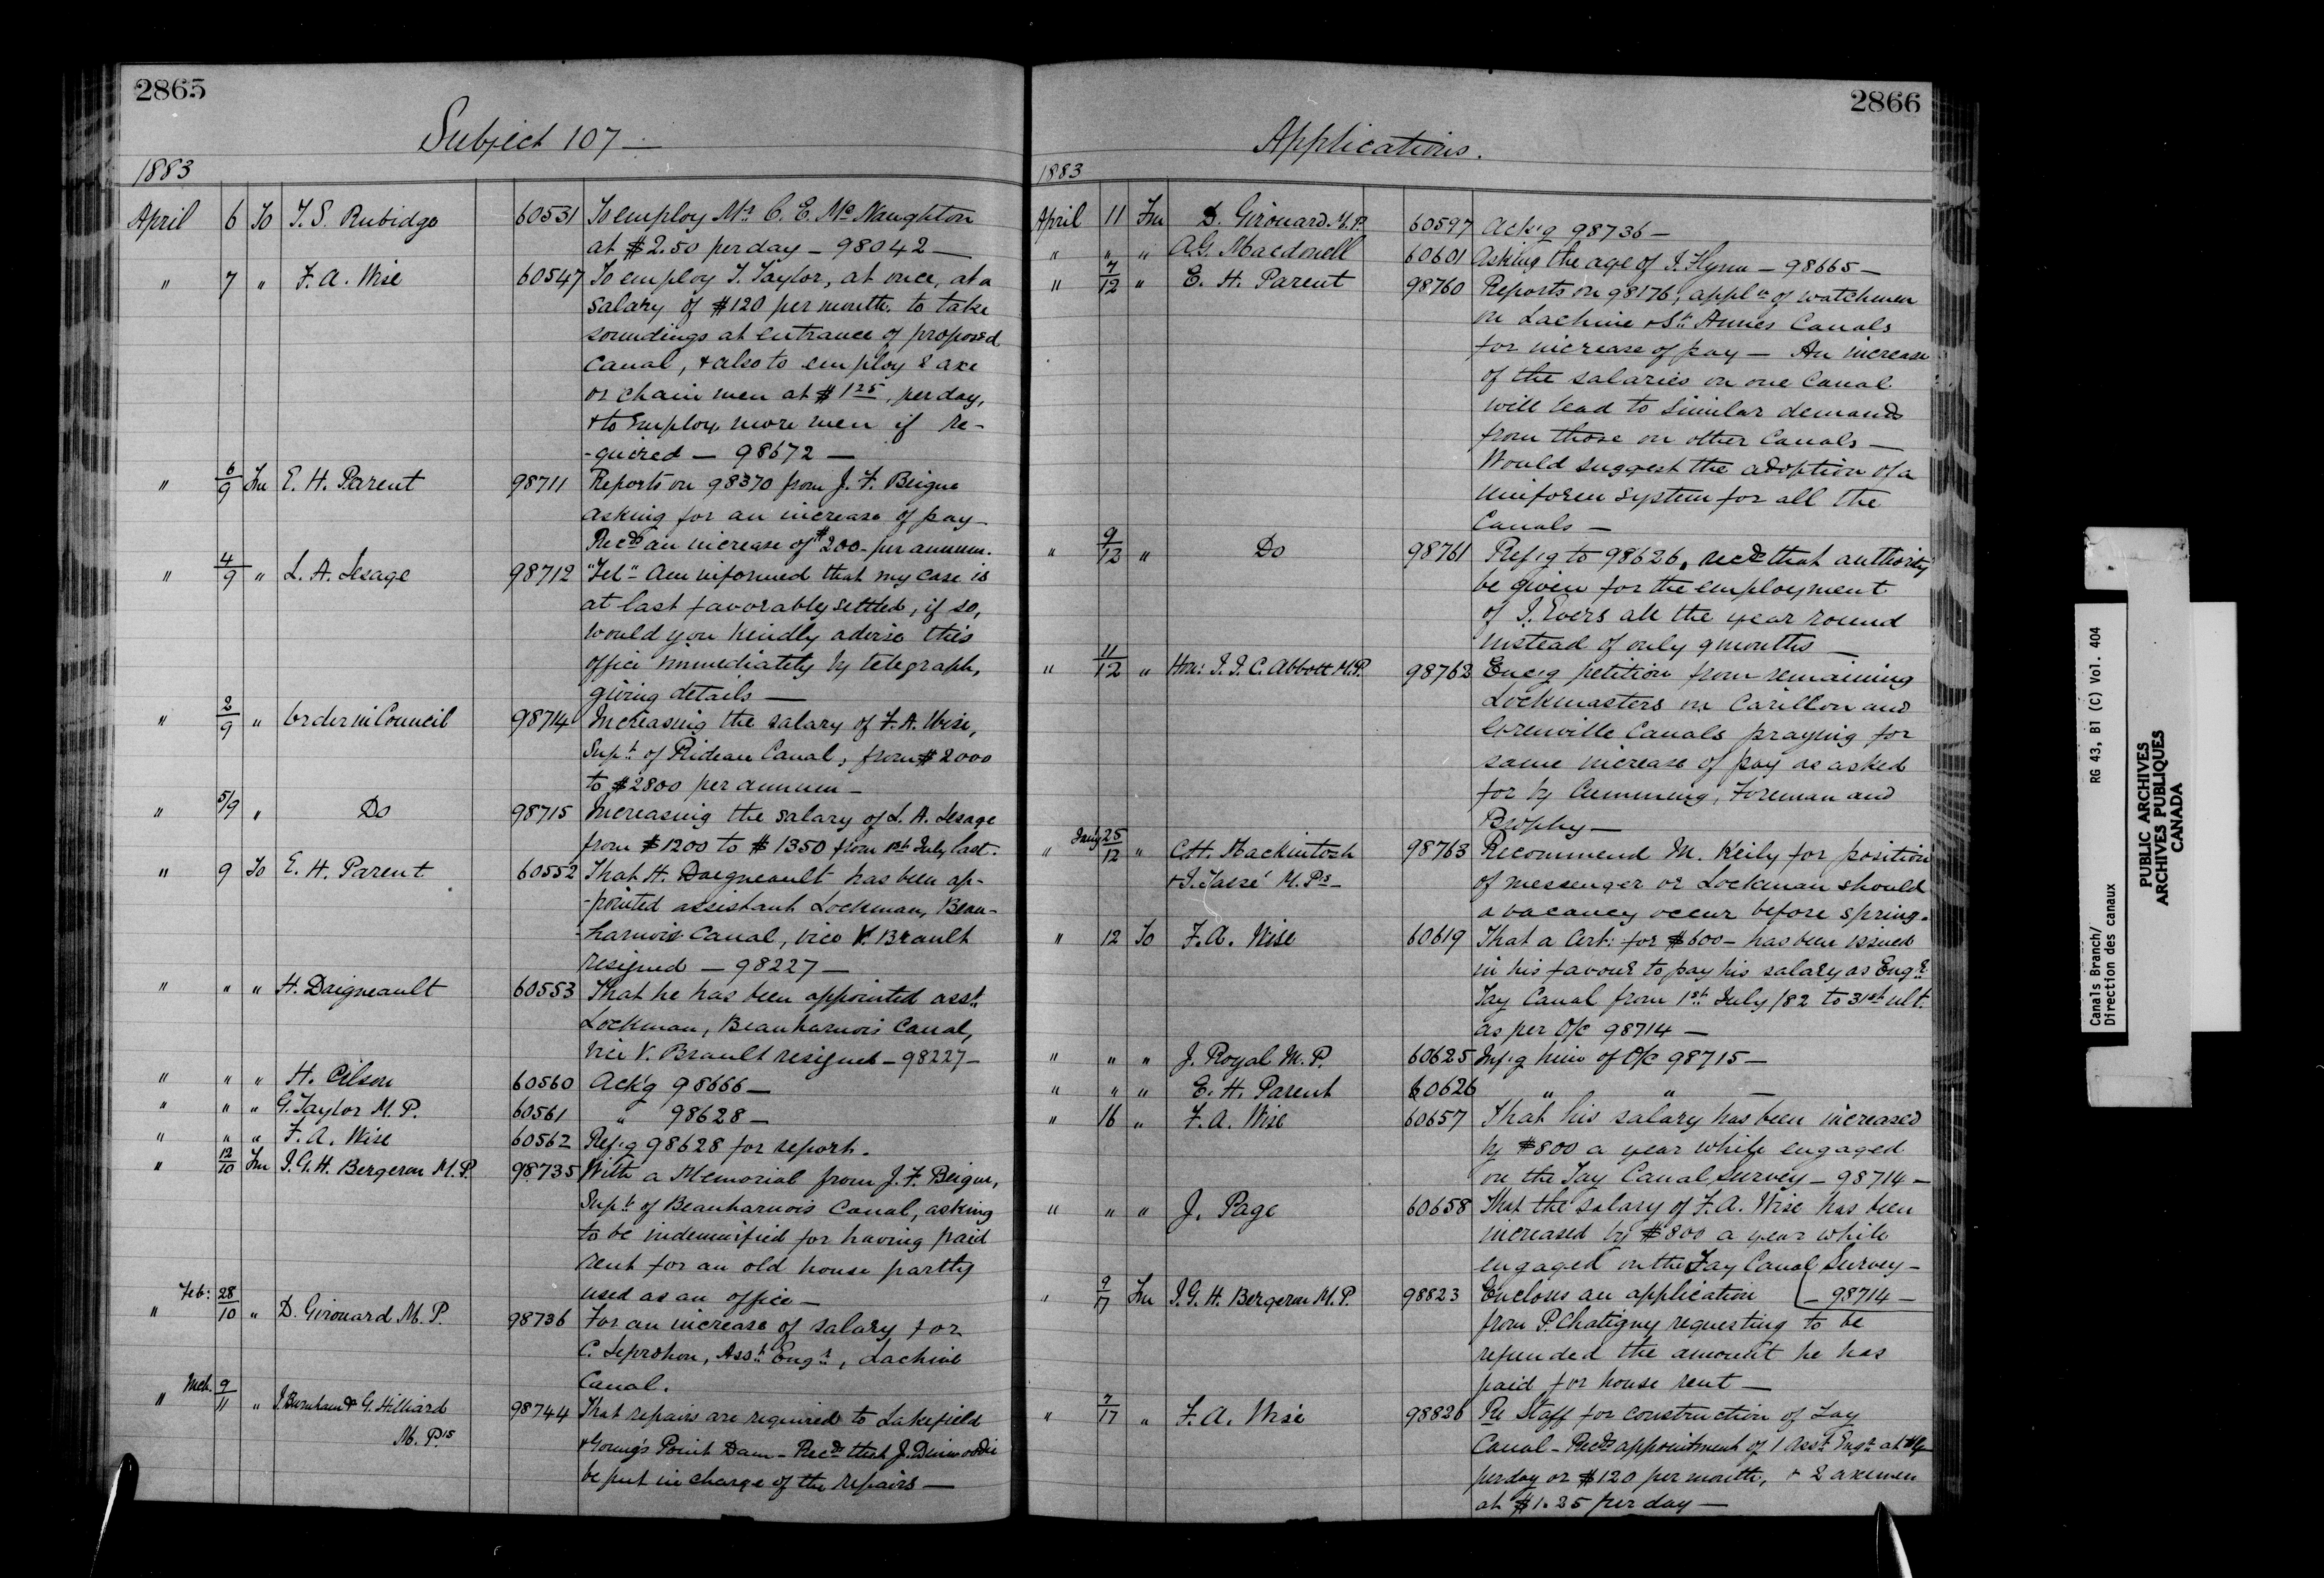 2865
Subject 107 —
1883
April 6 To T. S. Rubidge 60531 To employ Mr C. E. McNaughton
at $2.50 per day — 98042 —
" 7 " F. A. Wise 60547 To employ T. Taylor, at once, at a
salary of $120 per month, to take
soundings at entrance of proposed
Canal, & also to employ 2 axe
or chain men at $1 25, per day,
& to employ more men if re-
-quired — 98672 —
" 6/9 Fm E. H. Parent 98711 Reports on 98370 from J. F. Beique
asking for an increase of pay —
Recds an increase of $200 - per annum.
" 4/9 " L. A. Lesage 98712 "Tel" Am informed that my case is
at last favorably settled, if so,
would you kindly advise this
office immediately by telegraph,
giving details —
" 2/9 " Order in Council 98714 Increasing the salary of F. A. Wise,
Supt of Rideau Canal, from $2000
to $2800 per annum —
" 5/9 " Do 98715 Increasing the salary of L. A. Lesage
from $1200 to $1350 from 1st July last.
" 9 To E. H. Parent 60552 That H. Daigneault has been ap-
-pointed assistant Lockman, Beau-
-harnois Canal, vice V. Brault
resigned — 98227 —
" " " H. Daigneault 60553 That he has been appointed asst
Lockman, Beauharnois Canal,
vice V. Brault resigned — 98227 —
" " " H. 60560 Ack'g 98666 —
" " " G. Taylor M. P. 60561 " 98628 —
" " " F. A. Wise 60562 Ref'g 98628 for report.
" 12/10 Fm J. G. H. Bergeron M. P. 98735 With a Memorial from J. F. Beique,
Supt of Beauharnois Canal, asking
to be indemnified for having paid
rent for an old house partly
used as an office —
" Feb: 28/10 " D. Girouard M. P. 98736 For an increase of salary for
C. Leprohon, Asst Engr, Lachine
Canal.
" Mch. 9/11 " J. Burnham & G. Hilliard 98744 That repairs are required to Lakefield
M. Ps & Young's Point Dam — Recd that J. Dinwoodie
be put in charge of the repairs —
2866
Applications.
1883
April 11 Fm D. Girouard. M. P. 60597 Ack'g 98736 —
" " " A. G. Macdonell 60601 Asking the age of J. Flynn — 98665 —
" 7/12 " E. H. Parent 98760 Reports on 98176, appln of watchmen
on Lachine & St. Annes Canals
for increase of pay — An increase
of the salaries on one Canal
will lead to similar demands
from those on other Canals —
Would suggest the adoption of a
uniform system for all the
Canals —
" 9/12 " Do 98761 Ref'g to 98626, recds that authority
be given for the employment
of J. Evers all the year round
instead of only 9 months —
" 11/12 " Hon: J. J. C. Abbott M. P. 98762 Enc'g petition from remaining
Lockmasters on Carillon and
Grenville Canals praying for
same increase of pay as asked
for by Cumming, Foreman and
Brophy —
" Jany 25/12 " C. H. Mackintosh 98763 Recommend M. Keily for position
& J. Tassé M. Ps — of messenger or Lockman should
a vacancy occur before spring.
" 12 To F. A. Wise 60619 That a Cert: for $600 — has been issued
in his favour to pay his salary as Engr
Tay Canal from 1st July /82 to 31st ult.
as per O/C 98714 —
" " " J. Royal M. P. 60625 Inf'g him of O/C 98715 —
" " " E. H. Parent 60626 " " —
" 16 " F. A. Wise 60657 That his salary has been increased
by $800 a year while engaged
on the Tay Canal Survey — 98714 —
" " " J. Page 60658 That the salary of F. A. Wise has been
increased by $800 a year while
engaged on the Tay Canal Survey —
" 9/17 Fm J. G. H. Bergeron M. P. 98823 Encloses an application — 98714 —
from P. Chatigny requesting to be
refunded the amount he has
paid for house rent —
" 7/17 " F. A. Wise 98826 Re Staff for construction of Tay
Canal — Recds appointment of 1 Asst Engr at $4
per day or $120 per month, & 2 axemen
at $1.25 per day —
Canals Branch/ RG 43, B1 (C) Vol. 404
Direction des canaux
PUBLIC ARCHIVES
ARCHIVES PUBLIQUES
CANADA